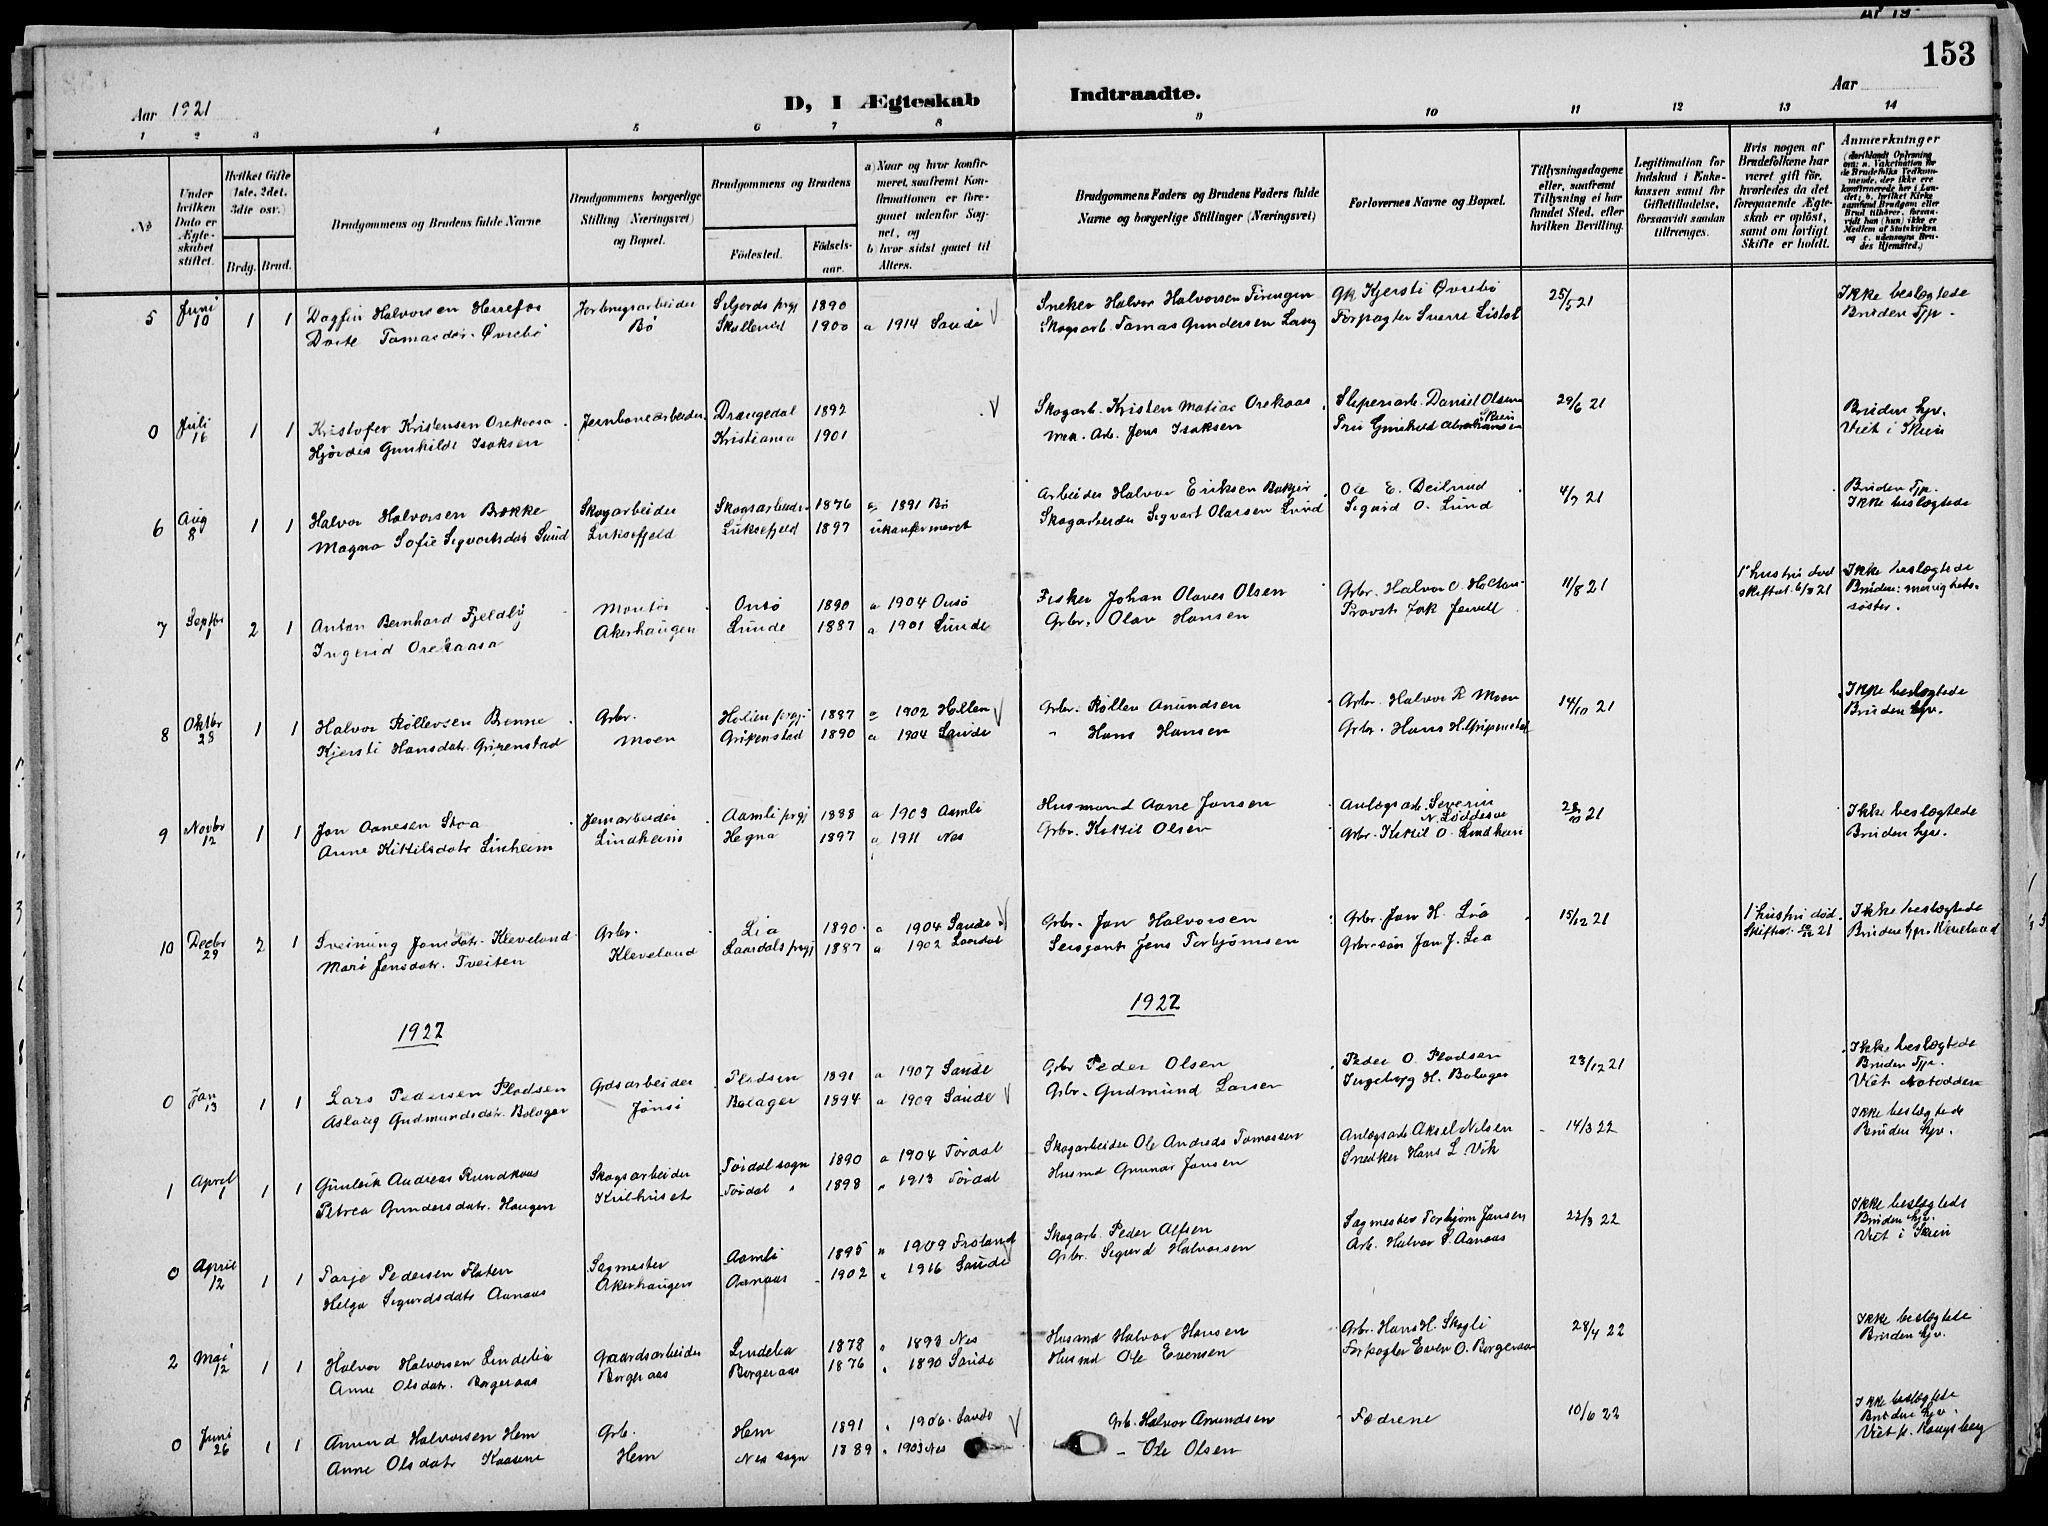 153
Aar 1921
D, I Ægteskab
Indtraadte.
Aar
1 2 3 4 5 6 7 8 9 10 11 12 13 14
No
Under hvilken Dato er Ægteskabet stiftet.
Hvilket Gifte (1ste, 2det, 3die osv.)
Brdg. Brud.
Brudgommens og Brudens fulde Navne
Brudgommens borgerlige Stilling (Næringsvei) og Bopæl.
Brudgommens og Brudens
Fødested.
Fødselsaar.
a) Naar og hvor konfirmeret, saafremt Konfirmationen er foregaaet udenfor Sognet, og
b) hvor sidst gaaet til Alters.
Brudgommens Faders og Brudens Faders fulde Navne og borgerlige Stillinger (Næringsvei)
Forlovernes Navne og Bopæl.
Tillysningsdagene eller, saafremt Tillysning ei har fundet Sted, efter hvilken Bevilling.
Legitimation for Indskud i Enkekassen samt for Giftetilladelse, forsaavidt saadan tiltrænges.
Hvis nogen af Brudefolkene har været gift før, hvorledes da det foregaaende Ægteskab er opløst, samt om lovligt Skifte er holdt.
Anmærkninger
5 Juni 10 1 1 Dagfin Halvorsen Herrefos Bø Seljords prgj 1890 Sneker Halvor Halvorsen Gk Kjersti Øvrebø 25/5 21 Ikke beslægtede
Dorte Tomasdtr. Øvrebø 1900 a 1914 Saude Skogsarb. Tomas Gundersen Forpagter Sverre Listøl Bruden Tjp.
0 Juli 16 1 1 Kristofer Kristensen Orekaasa Jernbanearbeider Drangedal 1892 Skogarb. Kristen Matias Orekaas Daniel Olsen 29/6 21 Bruden hjv.
Hjørdis Gunhilde Isaksen Kristiania 1901 Mek. Arb. Jens Isaksen Viet i Skien
6 Aug 8 1 1 Halvor Halvorsen Bakke Skogarbeider 1876 a 1891 Bø Arbeider Halvor Eriksen Ole E. 4/7 21 Bruden Tjp.
Magna Sofie Sigvartsdtr Lund Luksefjeld Luksefjeld 1897 ukonfirmeret Skogarbeider Sigvart Olavsen Lund Sigurd O. Lund Ikke beslegtede
7 Septbr 1 2 1 Anton Bernhard Fjeldly Montør Onsø 1890 a 1904 Onsø Fisker Johan Olaves Olsen Grbr. Halvor O. 11/8 21 1 hustru død skiftet 6/8 21 Ikke beslægtede
Ingerid Orekaasa Akerhaugen Lunde 1887 a 1901 Lunde Grbr. Olav Hansen Provst Bruden: menighetssøster.
8 Oktbr 28 1 1 Halvor Røllevsen Brenne Grbr. 1887 a 1902 Hollen Grbr. Røllev Anundsen Grbr. Halvor R. Moen 14/10 21 Ikke beslegtede
Kjersti Hansdatr. Gripenstad Moen Gripenstad 1890 a 1904 Saude " Hans Hansen Grbr. Hans H. Gripenstad Bruden hjv.
9 Novbr 12 1 1 Jon Aanesen Stoa Jernarbeider Aamli prgj 1888 a 1903 Aamli Husmand Aane Jonsen Anlegsarb. Severin N. 28/10 21 Ikke beslegtede
Anne Kittilsdatr Linheim Lindheim Hegna 1897 a 1911 Nes Grbr. Kittil Olsen Grbr. Kittil O. Lindheim Bruden hjv.
10 Decbr 29 2 1 Sveinung Jonsdatr. Kleveland Grbr. Lia 1890 a 1904 Saude Grbr. Jon Halvorsen Grbr. Jon H. Lia 15/12 21 1 hustru død Ikke beslegtede
Mari Jensdatr. Tveiten Kleveland Laardals prgj 1887 a 1902 Laardal Sersjant Jens Torbjørnsen Grbr.søn Jon J. Lia Skiftet 21 Bruden hjv. Kleveland
1922
1922
0 Jan 13 1 1 Lars Pedersen Pladsen Grdsarbeider Pladsen 1891 a 1907 Saude Grbr Peder Olsen Peder O. Pladsen 23/12 21 Ikke beslægtede Bruden Tjp.
Aslaug Gudmundsdtr. Bolager Jønsi Bolager 1894 a 1909 Saude Grbr. Gudmund Larsen Ingeborg H. Bolager Viet Notodden
1 April 1 1 1 Gunleik Andreas Rundkaas Skogsarbeider Tørdal sogn 1890 a 1904 Tørdal Skogarbeider Ole Andreas Tomassen Anlegsarb Aksel Nilsen 14/3 22 Ikke beslegtede
Petrea Gundersdatr. Haugen Tørdal " 1898 " 1913 Tørdal Husmd Gunnar Jonsen Snedker Hans L Vik Bruden hjv.
0 April 12 1 1 Tarje Pedersen Flaten Sagmester Aamli 1895 " 1909 Froland Skogarb. Peder Olsen Sagmester Torbjørn Jansen 22/3 22 Ikke beslegtede Bruden hjv.
Helga Sigurdsdatr Aanaas Akerhaugen Aanaas 1902 " 1916 Saude Grbr. Sigurd Halvorsen Arb. Halvor S. Aanaas Viet i Skien
2 Mai 12 1 1 Halvor Halvorsen Lindelia Gaardsarbeider Lindelia 1878 " 1893 Nes Husmd Halvor Hansen Grbr. Hans H. Skogli 28/4 22 Ikke beslegtede
Anne Olsdatr. Borgeraas Borgeraas Borgeraas 1876 " 1890 Saude Husmd Ole Evensen Forpagter Even O. Borgeraas Bruden hjv.
0 Juni 26 1 1 Anund Halvorsen Hem Grb. Hem 1891 " 1906 Saude Grb. Halvor Anundsen Fædrene 10/6 22 Ikke beslegtede Bruden hjv.
Anne Olsdatr Kaasene Hem Nes sogn 1889 " 1903 Nes - Ole Olsen Viet p. Kongsberg